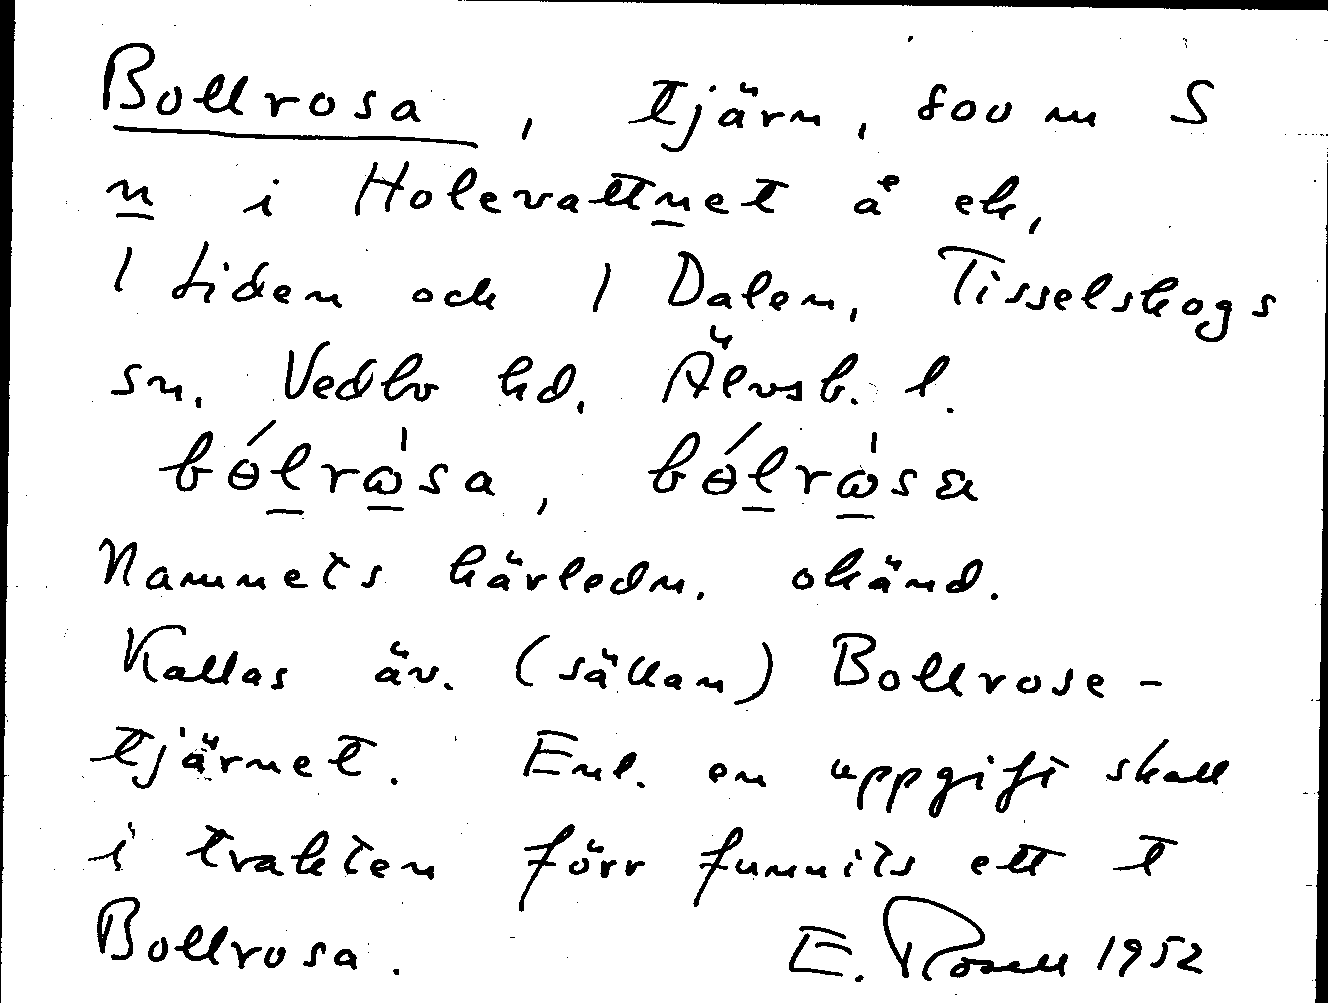 Bollrosa, tjärn, 800 m S
n i Holevattnet å ek,
1 Liden och 1 Dalen, Tisselskogs
sn, Vedbo hd, Älvsb. l.
bólrὼsa, bólrὼsa
Namnets härledn. okänd.
Kallas äv. (sällan) Bollrose-
tjärnet. Enl. en uppgift skall
i trakten förr funnits ett t
Bollrosa. E. Rosell 1952